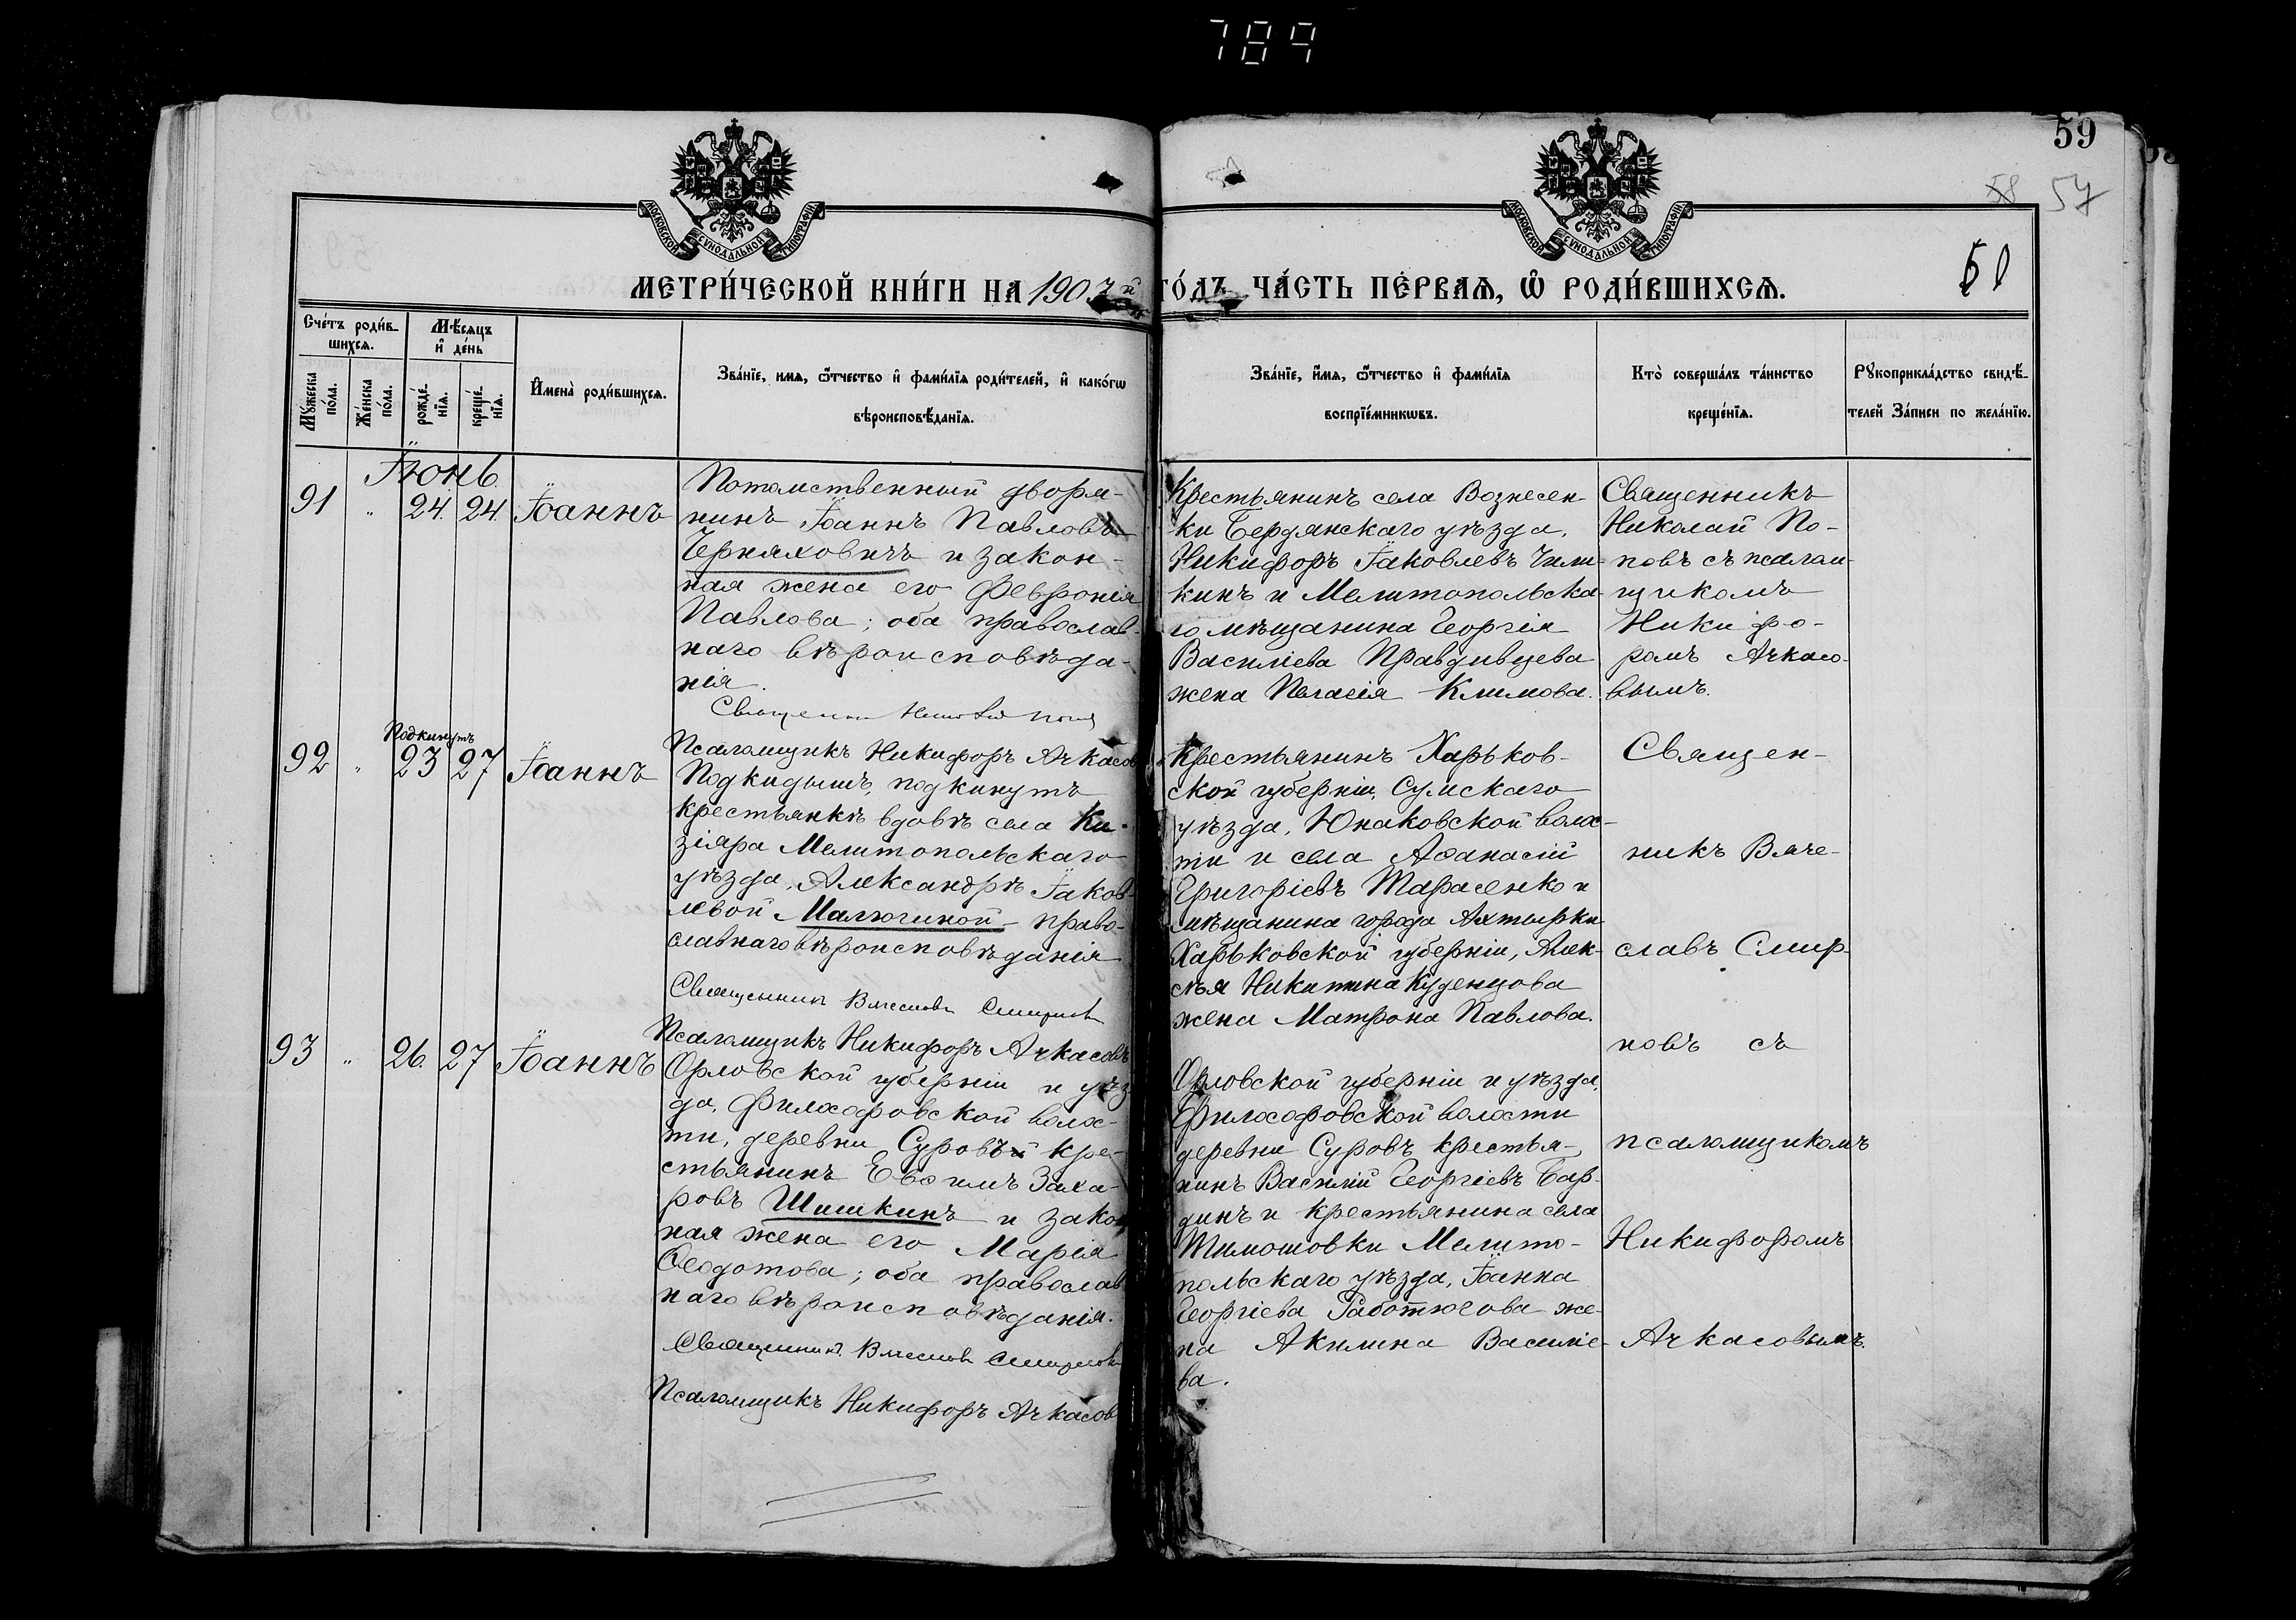 789
59
58 57
60
МОСКОВСКОЙ СѴНОДАЛЬНОЙ ТИПОГРАФІИ
МОСКОВСКОЙ СѴНОДАЛЬНОЙ ТИПОГРАФІИ
МЕТРИ́ЧЕСКОЙ КНИ́ГИ НА 1907й ГО́ДЪ, ЧА́СТЬ ПЕ́РВАѦ, Ѡ РОДИ́ВШИХСѦ.
Сче́тъ роди́в-
шихсѧ.
Мꙋ́жеска
по́ла.
Же́нска
по́ла.
Мѣ́сѧцъ
и де́нь
рожде́-
нїѧ.
креще́-
нїѧ.
Имена̀ роди́вшихсѧ.
Зва́нїе, имѧ, ѻ҆́тчество и фами́лїѧ роди́телей, и како́гѡ
вѣроисповѣ́данїѧ.
Зва́нїе, и́мѧ, ѻ҆́тчество и фами́лїѧ
воспрїе́мникѡвъ.
Кто̀ соверша́лъ та́инство
креще́нїѧ.
Рꙋкоприкла́дство свидѣ́-
телей За́писи по жела́нїю.
Іюнь.
91 " 24. 24. Іоаннъ
Потомственный дворя-
нинъ Іоаннъ Павловъ
Черняховичъ и закон-
ная жена его Февронія
Павлова; оба православ-
наго вѣроисповѣда-
нія.
Крестьянинъ села Вознесен-
ки Бердянскаго уѣзда,
Никифоръ Іаковлевъ Чили-
кинъ и Мелитопольска-
го мѣщанина Георгія
Василіева Правдивцева
жена Пелагія Климова.
Священникъ
Николай По-
повъ съ псалом-
щикомъ
Никифо-
ромъ Ачкасо-
вымъ.
Псаломщикъ Никифоръ Ачкасов
Подкинутъ
92 " 23 27 Іоаннъ
Подкидышъ, подкинутъ
крестьянкѣ вдовѣ села Ки-
зіяра Мелитопольскаго
уѣзда, Александрѣ Іаков-
левой Малюгиной право-
славнаго вѣроисповѣданія
Священникъ Вячеславъ Смирновъ
Псаломщикъ Никифоръ Ачкасовъ
Крестьянинъ Харьков-
ской губерніи, Сумскаго
уѣзда, Юнаковской волос-
ти и села Аѳанасій
Григоріевъ Тарасенко и
мѣщанина города Ахтырки
Харьковской губерніи, Алек-
сѣя Никитина Куденцова
жена Матрона Павлова.
Священ-
никъ Вяче-
славъ Смир-
новъ съ
псаломщикомъ
Никифоромъ
Ачкасовымъ.
93 " 26. 27 Іоаннъ
Орловской губерніи и уѣз
да, Философовской волос-
ти, деревни Суровъ кре-
стьянинъ Евѳимъ Заха-
ровъ Шишкинъ и закон
ная жена его Марія
Ѳеодотова; оба православ
наго вѣроисповѣданія.
Священникъ Вячеславъ Смирновъ
Псаломщикъ Никифоръ Ачкасов
Орловской губерніи и уѣзда,
Философовской волости
деревни Суровъ крестья-
нинъ Василій Георгіевъ Бар-
динъ и крестьянина села
Тимошовки Мелито-
польскаго уѣзда, Іоанна
Георгіева Работюгова же-
на Акилина Василіе-
ва.